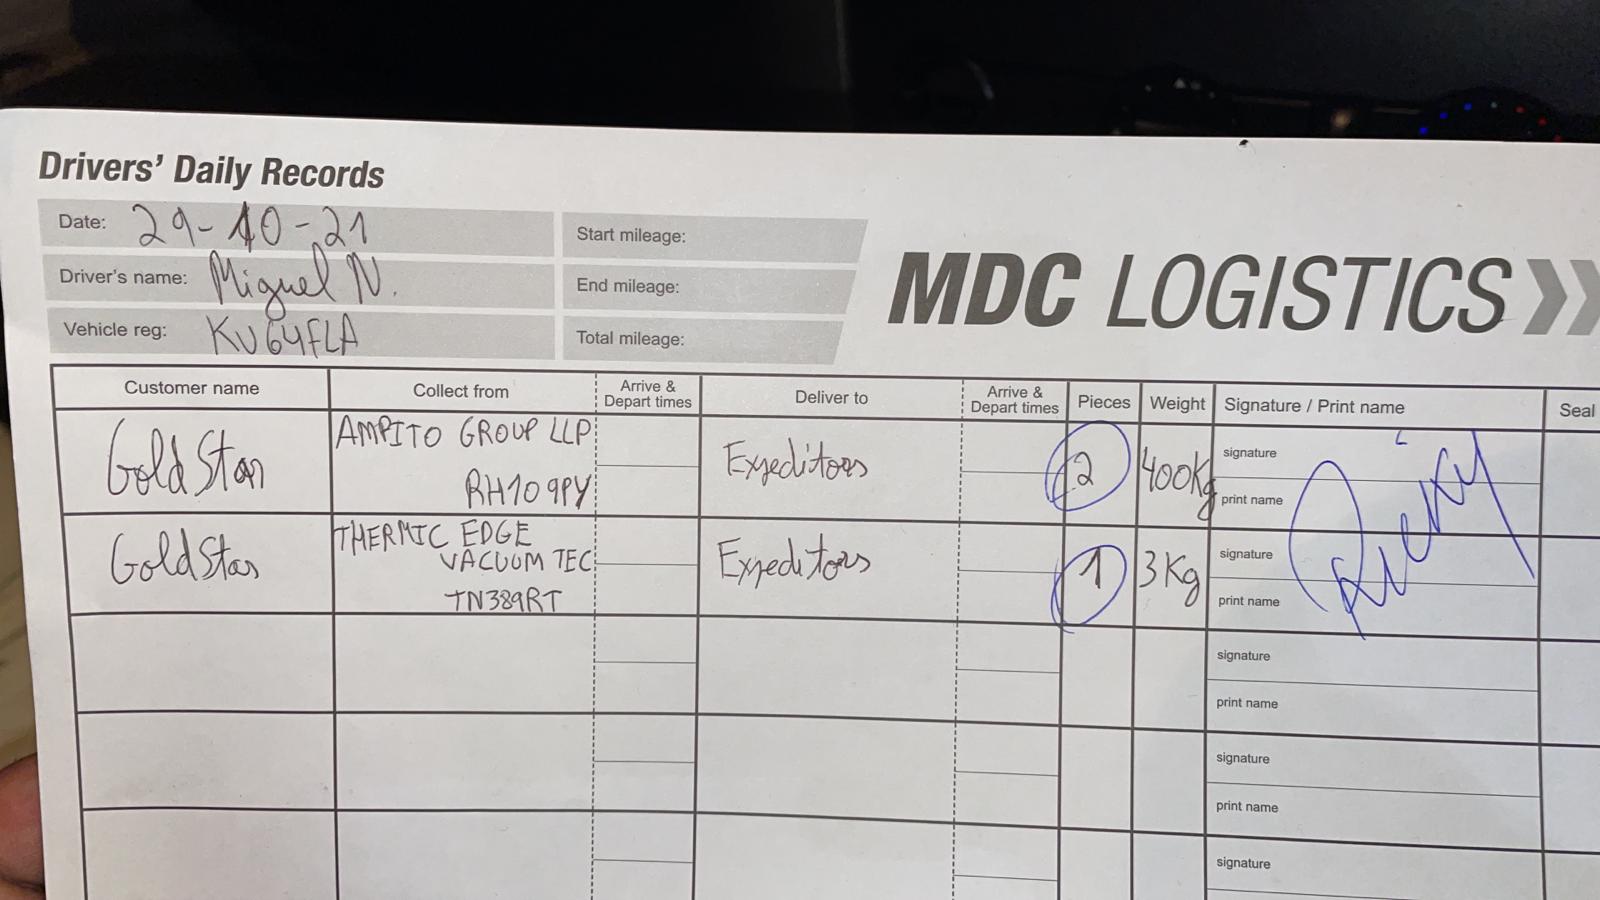 Drivers' Daily Records
Date: 29-10-21
Start mileage:
Driver's name: Miguel N.
End mileage:
Vehicle reg: KV64FLA
Total mileage:
MDC LOGISTICS
Customer name
Collect from
Arrive &
Depart times
Deliver to
Arrive &
Depart times
Pieces
Weight
Signature / Print name
Seal
Gold Star
AMPITO GROUP LLP
RH10 9PY
Expeditors
2
400Kg
signature
print name
Gold Star
THERMIC EDGE
VACUUM TEC
TN389RT
Expeditors
1
3Kg
signature
print name
signature
print name
signature
print name
signature